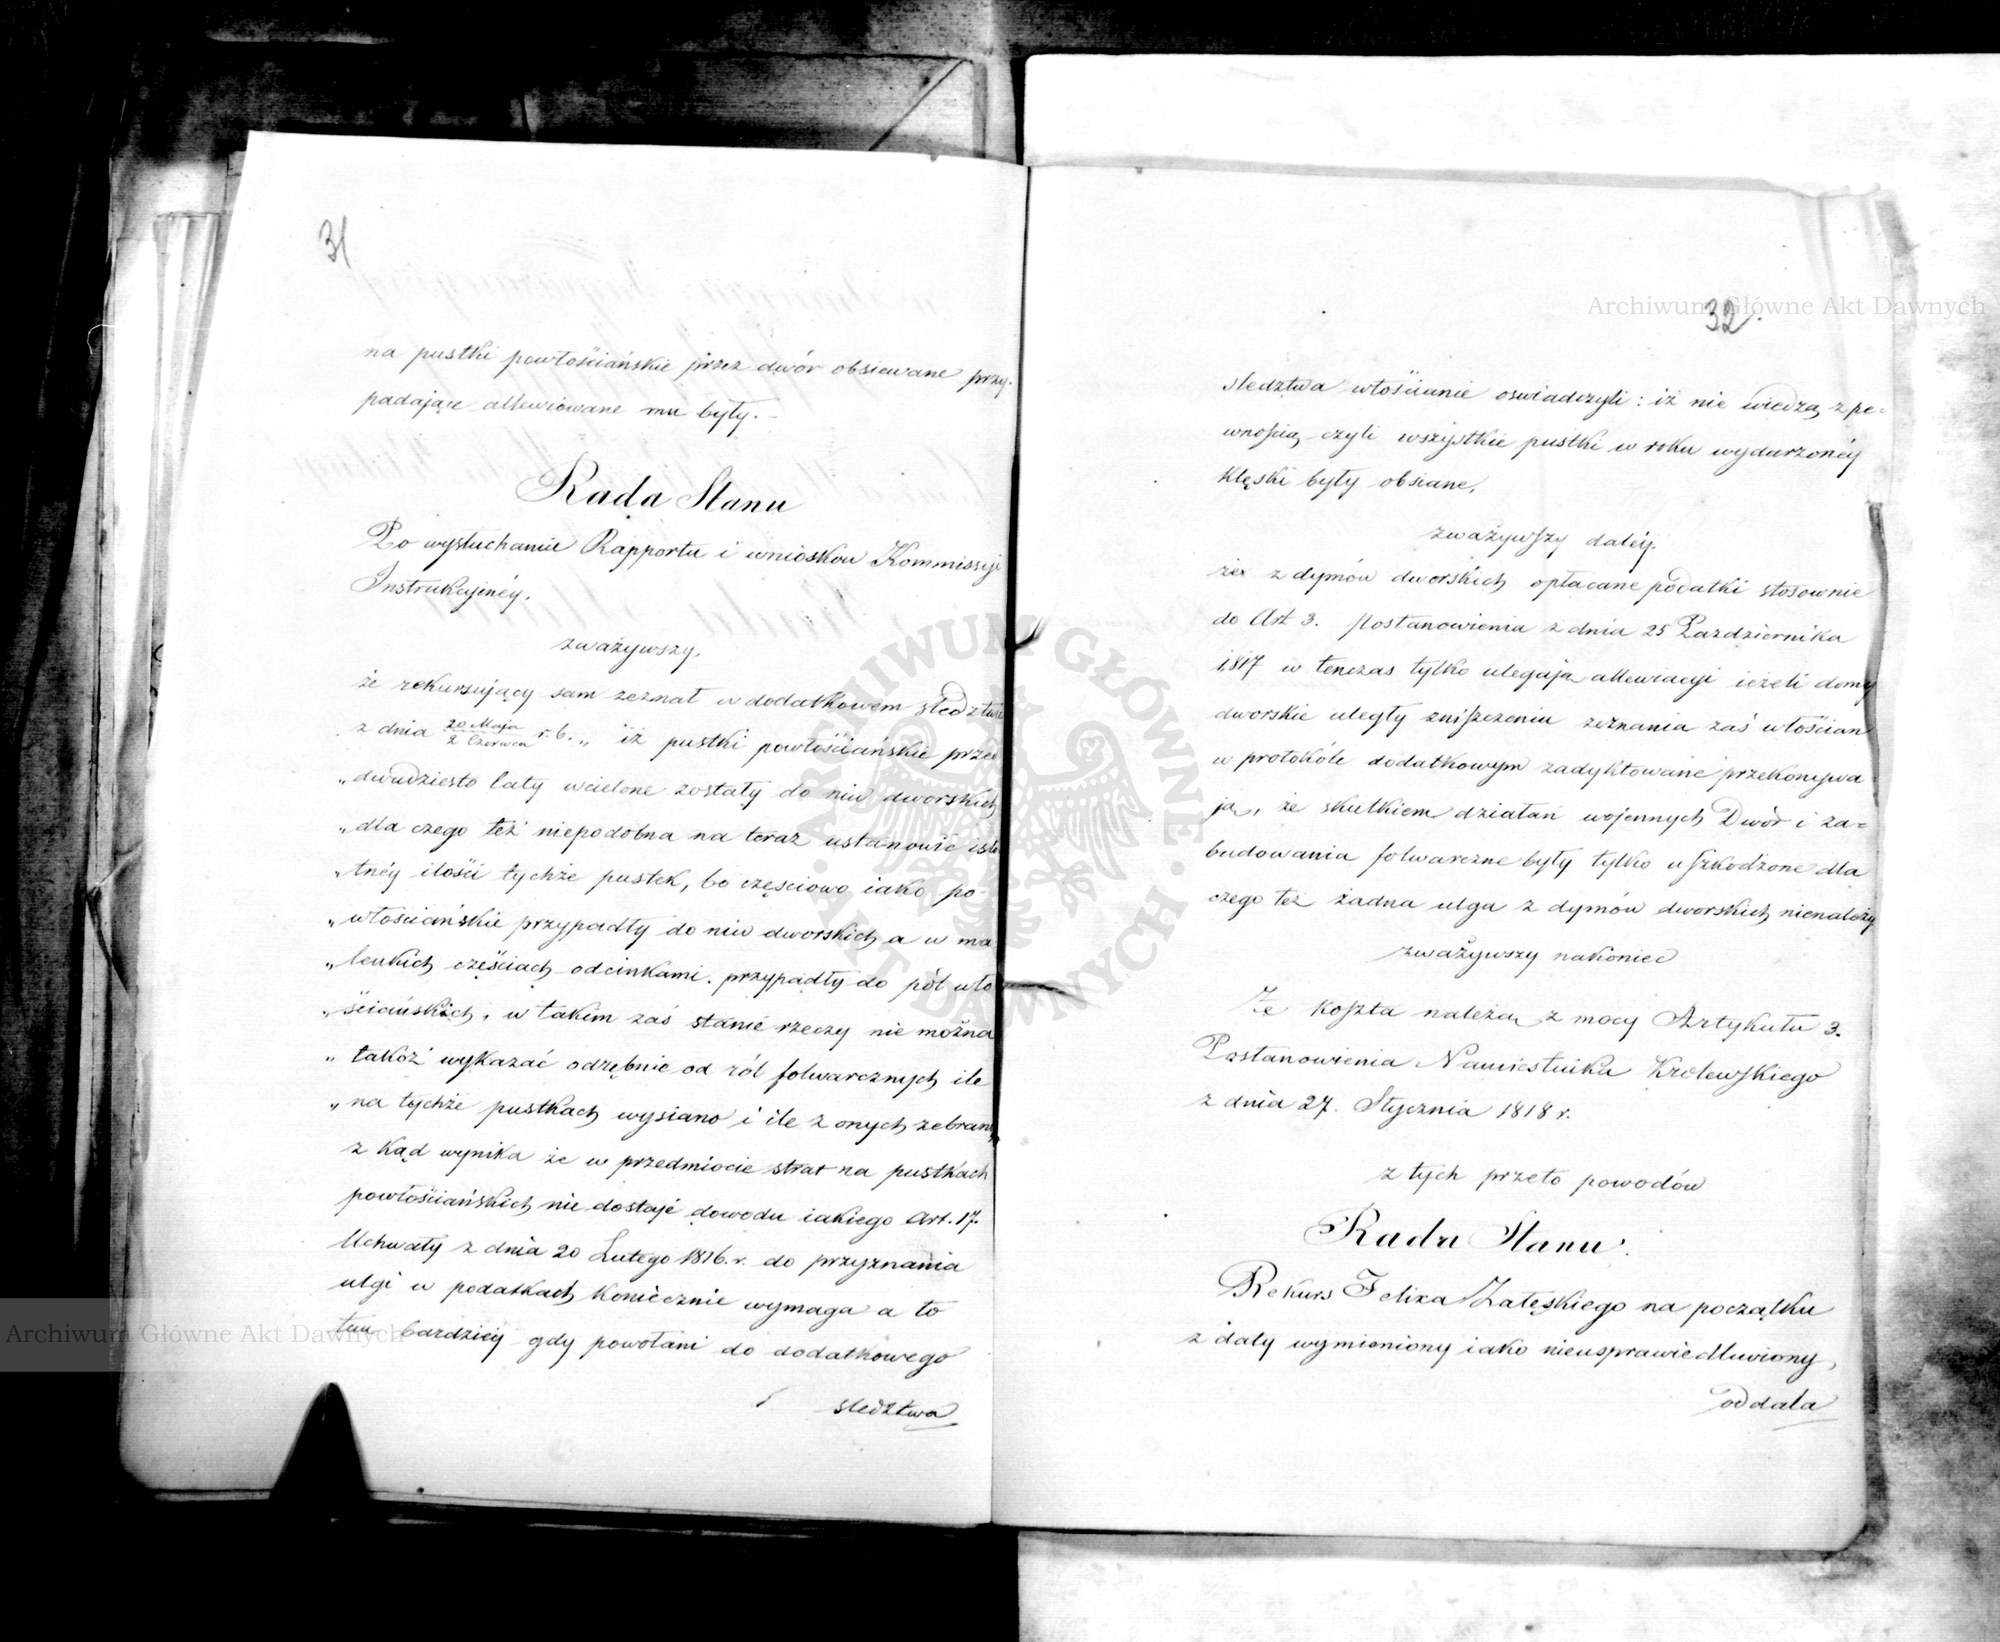 31
na pustki powłościańskie przez dwór obsiewane przy-
padające allewiowane mu były. –
Rada Stanu
Po wysłuchaniu Rapportu i wniosków Kommissyi
Instrukcyinéy.
zważywszy,
że rekursujący sam zeznał w dodatkowem śledztwie
z dnia 20 Maja / 2 Czerwca r. b. „ iż pustki powłościańskie przed
„dwudziesto laty wcielone zostały do niw dworskich
„dla czego też niepodobna na teraz ustanowić isto
„tnéy ilości tychże pustek, bo częsciowo iako po-
„włościańskie przypadły do niw dworskich a w ma
„leńkich częściach odcinkami przypadły do pól wło
„ściańskich, w takim zaś stanie rzeczy nie można
„ takoż wykazać odrębnie od ról folwarcznych ile
„na tychże pustkach wysiano i ile z onych zebrano,
z kąd wynika że w przedmiocie strat na pustkach
powłościańskich nie dostaje dowodu iakiego Art. 17.
Uchwały z dnia 20 Lutego 1816. r. do przyznania
ulgi w podatkach koniecznie wymaga a to
tem bardziéy gdy powołani do dodatkowego
śledztwa
32.
śledztwa włościanie oswiadczyli: iż nie wiedzą z pe=
wnością czyli wszystkie pustki w roku wydarzonéy
klęski były obsiane,
zważywszy daléy.
że z dymów dworskich opłacane podatki stosownie
do Art 3. Postanowienia z dnia 25 Pazdziernika
1817 w tenczas tylko ulegają allewiacyi ieżeli domy
dworskie uległy zniszczeniu zeznania zaś włościan
w protokóle dodatkowym zadyktowane przekonywa-
ją, że skutkiem działań wojennych Dwór i za=
budowania folwarczne były tylko uszkodzone dla
czego też żadna ulga z dymów dworskich nienależy
zważywszy nakoniec
Że koszta należą z mocy Artykułu 3.
Postanowienia Namiestnika Królewskiego
z dnia 27. Stycznia 1818 r.
z tych przeto powodów
Rada Stanu.
Rekurs Felixa Załęskiego na początku
z daty wymieniony iako nieusprawiedliwiony,
oddala
Archiwum Główne Akt Dawnych
Archiwum Główne Akt Dawnych
ARCHIWUM GŁÓWNE · AKT DAWNYCH ·